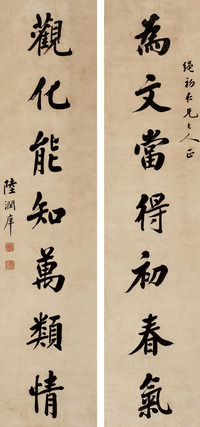 繩初仁兄大人正
為文當得初春氣
觀化能知萬類情
陸潤庠